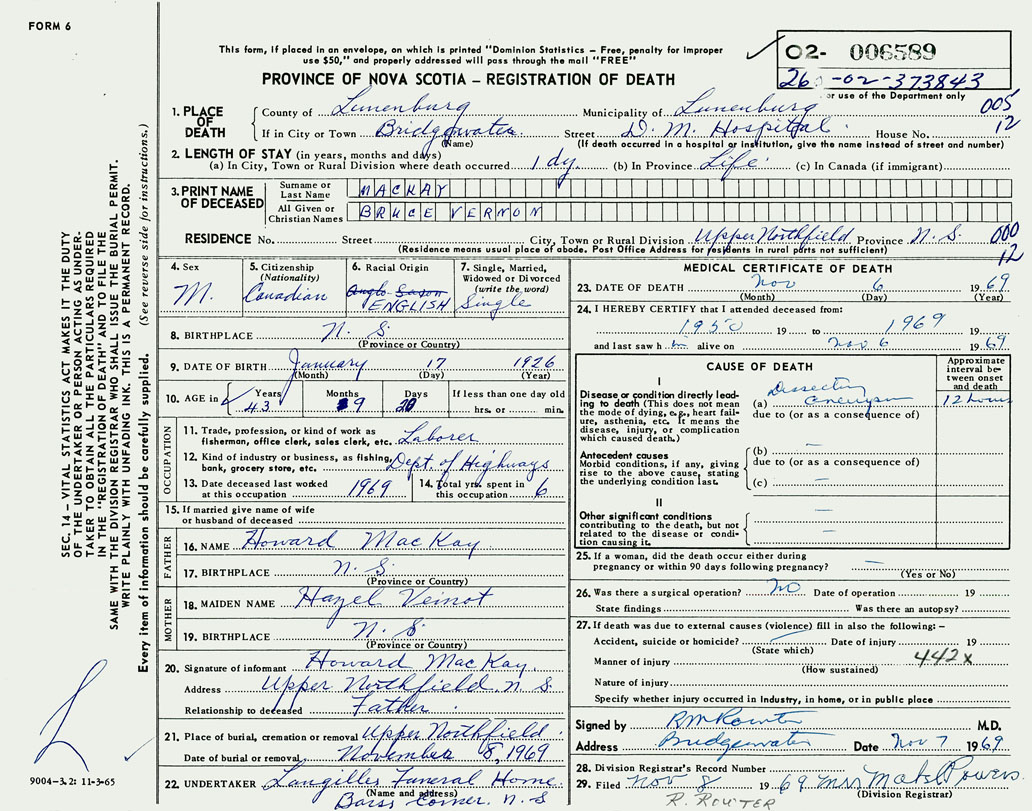 FORM 6
This form, if placed in an envelope, on which is printed "Dominion Statistics – Free, penalty for improper
use $50," and properly addressed will pass through the mail "FREE"
PROVINCE OF NOVA SCOTIA – REGISTRATION OF DEATH
02- 006589
26 -02-373843
or use of the Department only
005
12
1. PLACE OF DEATH
County of Lunenburg Municipality of Lunenburg
If in City or Town Bridgewater Street D. M. Hospital House No.
(Name) (If death occurred in a hospital or institution, give the name instead of street and number)
2. LENGTH OF STAY (in years, months and days)
(a) In City, Town or Rural Division where death occurred 1 dy. (b) In Province Life (c) In Canada (if immigrant)
3. PRINT NAME OF DECEASED
Surname or Last Name MACKAY
All Given or Christian Names BRUCE VERNON
RESIDENCE No. Street City, Town or Rural Division Upper Northfield Province N. S. 000
(Residence means usual place of abode. Post Office Address for residents in rural parts not sufficient) 12
4. Sex M.
5. Citizenship (Nationality) Canadian
6. Racial Origin Anglo Saxon ENGLISH
7. Single, Married, Widowed or Divorced (write the word) Single
8. BIRTHPLACE N. S.
(Province or Country)
9. DATE OF BIRTH January 17 1926
(Month) (Day) (Year)
10. AGE in Years 43 Months 9 Days 20 If less than one day old hrs. or min.
OCCUPATION
11. Trade, profession, or kind of work as fisherman, office clerk, sales clerk, etc. Laborer
12. Kind of industry or business, as fishing, bank, grocery store, etc. Dept. of Highways
13. Date deceased last worked at this occupation 1969
14. Total yrs. spent in this occupation 6
15. If married give name of wife or husband of deceased
FATHER
16. NAME Howard MacKay
17. BIRTHPLACE N. S.
(Province or Country)
MOTHER
18. MAIDEN NAME Hazel Veinot
19. BIRTHPLACE N. S.
(Province or Country)
20. Signature of informant Howard MacKay
Address Upper Northfield. N. S.
Relationship to deceased Father
21. Place of burial, cremation or removal Upper Northfield
Date of burial or removal November 8, 1969
22. UNDERTAKER Langilles Funeral Home
(Name and address)
Barss Corner. N. S
MEDICAL CERTIFICATE OF DEATH
23. DATE OF DEATH Nov 6 1969
(Month) (Day) (Year)
24. I HEREBY CERTIFY that I attended deceased from:
1950 19 to 1969 19
and last saw him alive on Nov 6 1969
CAUSE OF DEATH
Approximate interval between onset and death
I
Disease or condition directly leading to death (This does not mean the mode of dying, e.g., heart failure, asthenia, etc. It means the disease, injury, or complication which caused death.)
(a) Dissecting aneurysm 12 hours
due to (or as a consequence of)
Antecedent causes
Morbid conditions, if any, giving rise to the above cause, stating the underlying condition last.
(b) —
due to (or as a consequence of)
(c) —
II
Other significant conditions contributing to the death, but not related to the disease or condition causing it.
—
—
25. If a woman, did the death occur either during pregnancy or within 90 days following pregnancy? —
(Yes or No)
26. Was there a surgical operation? No Date of operation 19
State findings Was there an autopsy?
27. If death was due to external causes (violence) fill in also the following: –
Accident, suicide or homicide? Date of injury 19
(State which)
Manner of injury 442x
(How sustained)
Nature of injury
Specify whether injury occurred in Industry, in home, or in public place
Signed by RM Rowter M.D.
Address Bridgewater Date Nov 7 1969
28. Division Registrar's Record Number
29. Filed Nov 8 1969 Mrs Mabel Powers
(Division Registrar)
R. ROWTER
SEC. 14 – VITAL STATISTICS ACT MAKES IT THE DUTY
OF THE UNDERTAKER OR PERSON ACTING AS UNDER-
TAKER TO OBTAIN ALL THE PARTICULARS REQUIRED
IN THE "REGISTRATION OF DEATH" AND TO FILE THE
SAME WITH THE DIVISION REGISTRAR WHO SHALL ISSUE THE BURIAL PERMIT.
WRITE PLAINLY WITH UNFADING INK. THIS IS A PERMANENT RECORD.
Every item of information should be carefully supplied. (See reverse side for instructions.)
9004-3.2: 11-3-65